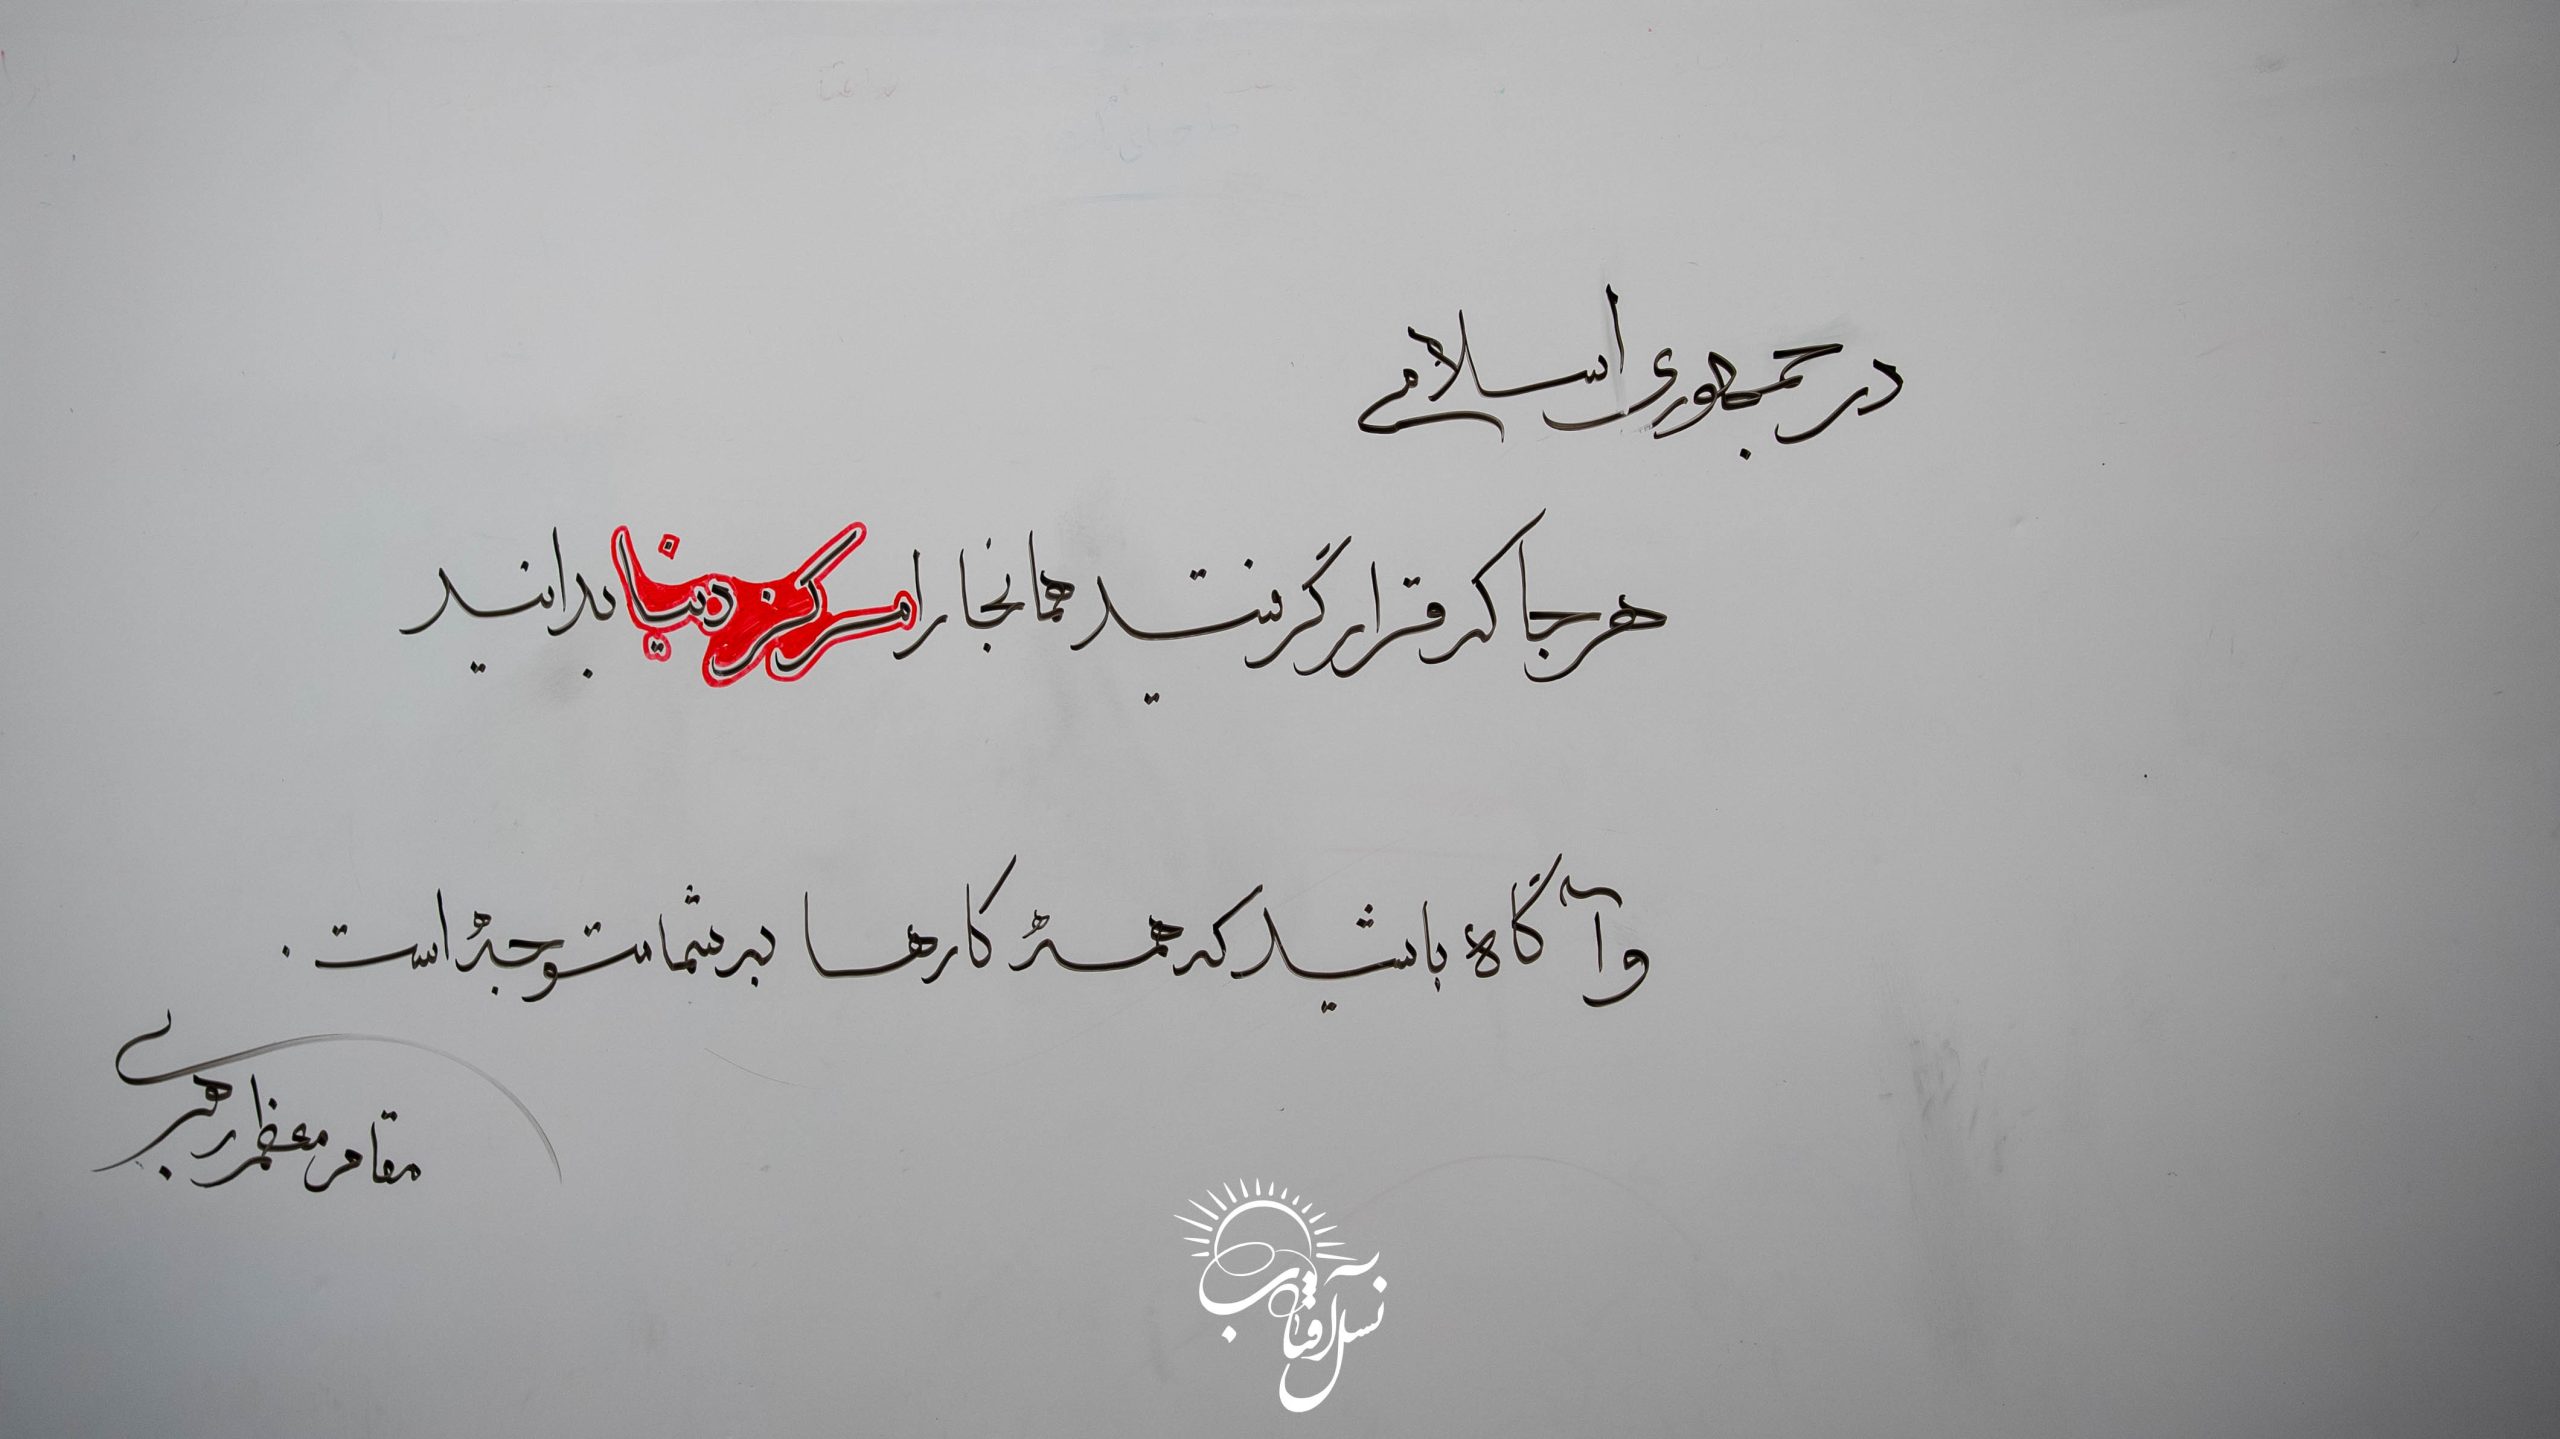 در جمهوری اسلامی
هرجا که قرار گرفتید همانجا را مرکز دنیا بدانید
و آگاه باشید که همهٔ کارها به شما متوجه است.
مقام معظم رهبری
نسل آفتاب